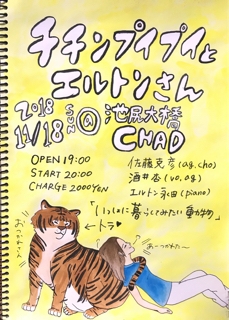 チチンプイプイと
エルトンさん
2018
11/18 SUN
@ 池尻大橋
CHAD
OPEN 19:00
START 20:00
CHARGE 2000YEN
佐藤克彦(ag,cho)
酒井杏(vo.ag)
エルトン永田(piano)
「いっしょに暮らしてみたい動物」
←トラ♡
あーつかれたー